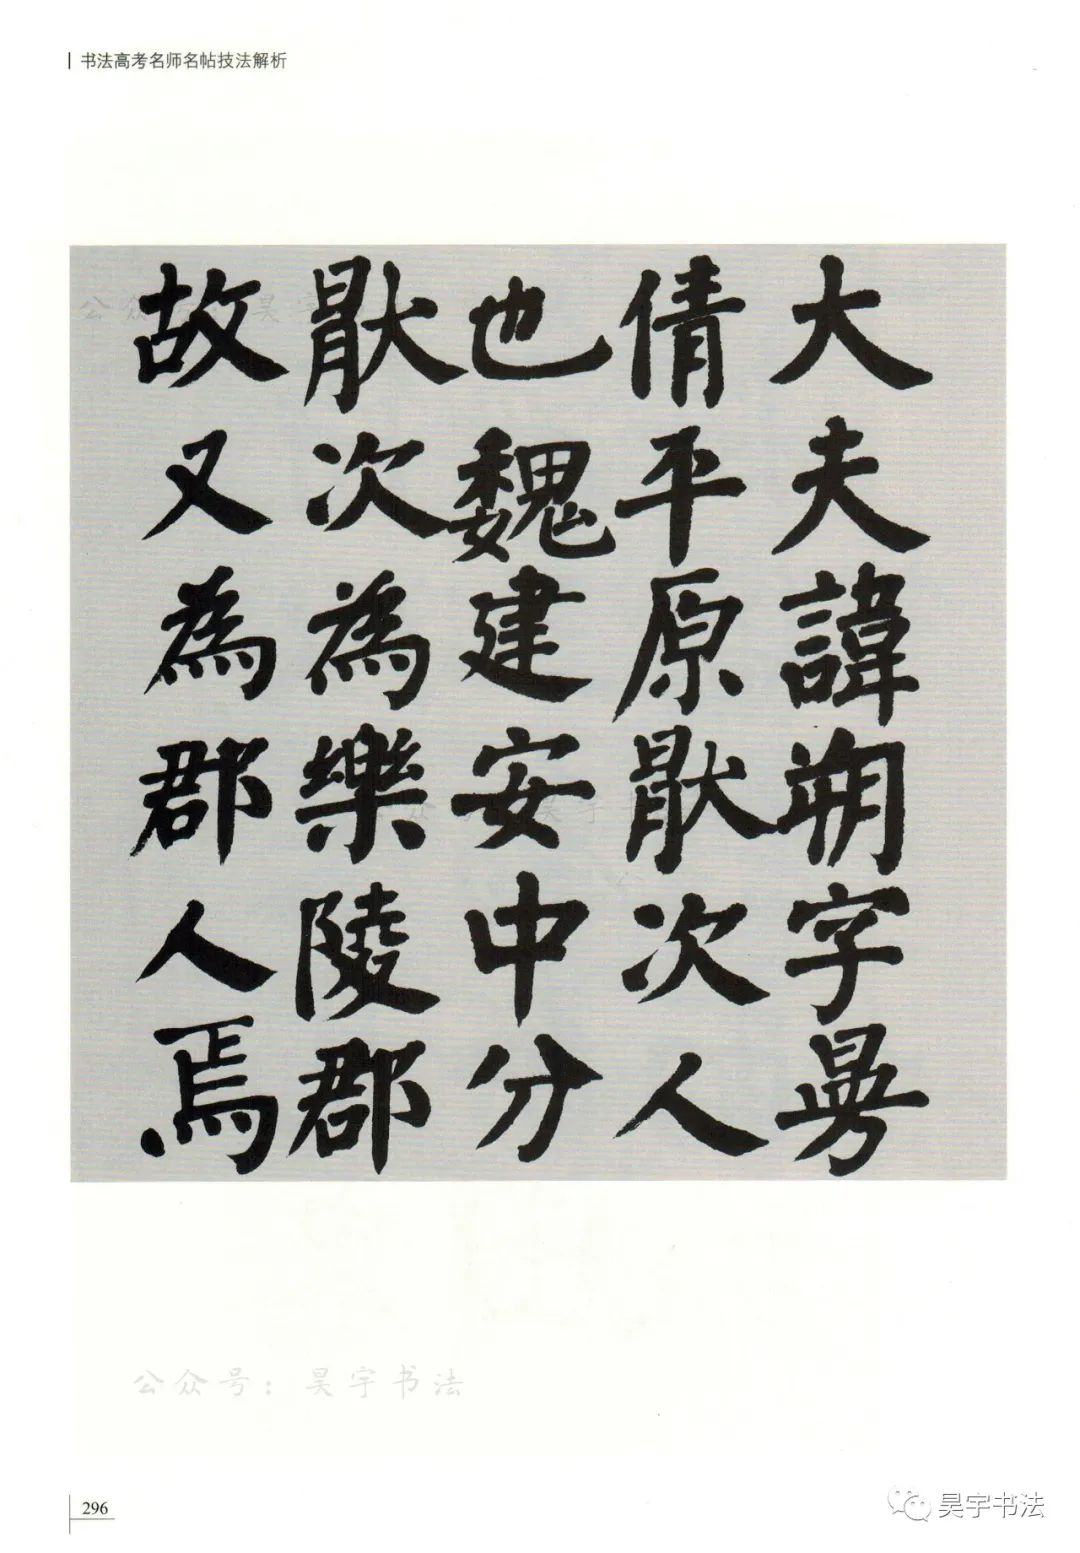 书法高考名师名帖技法解析
大夫諱朔字
倩平原猒次人
也魏建安中分
猒次為樂陵郡
故又為郡人焉
公众号：昊宇书法
296
昊宇书法